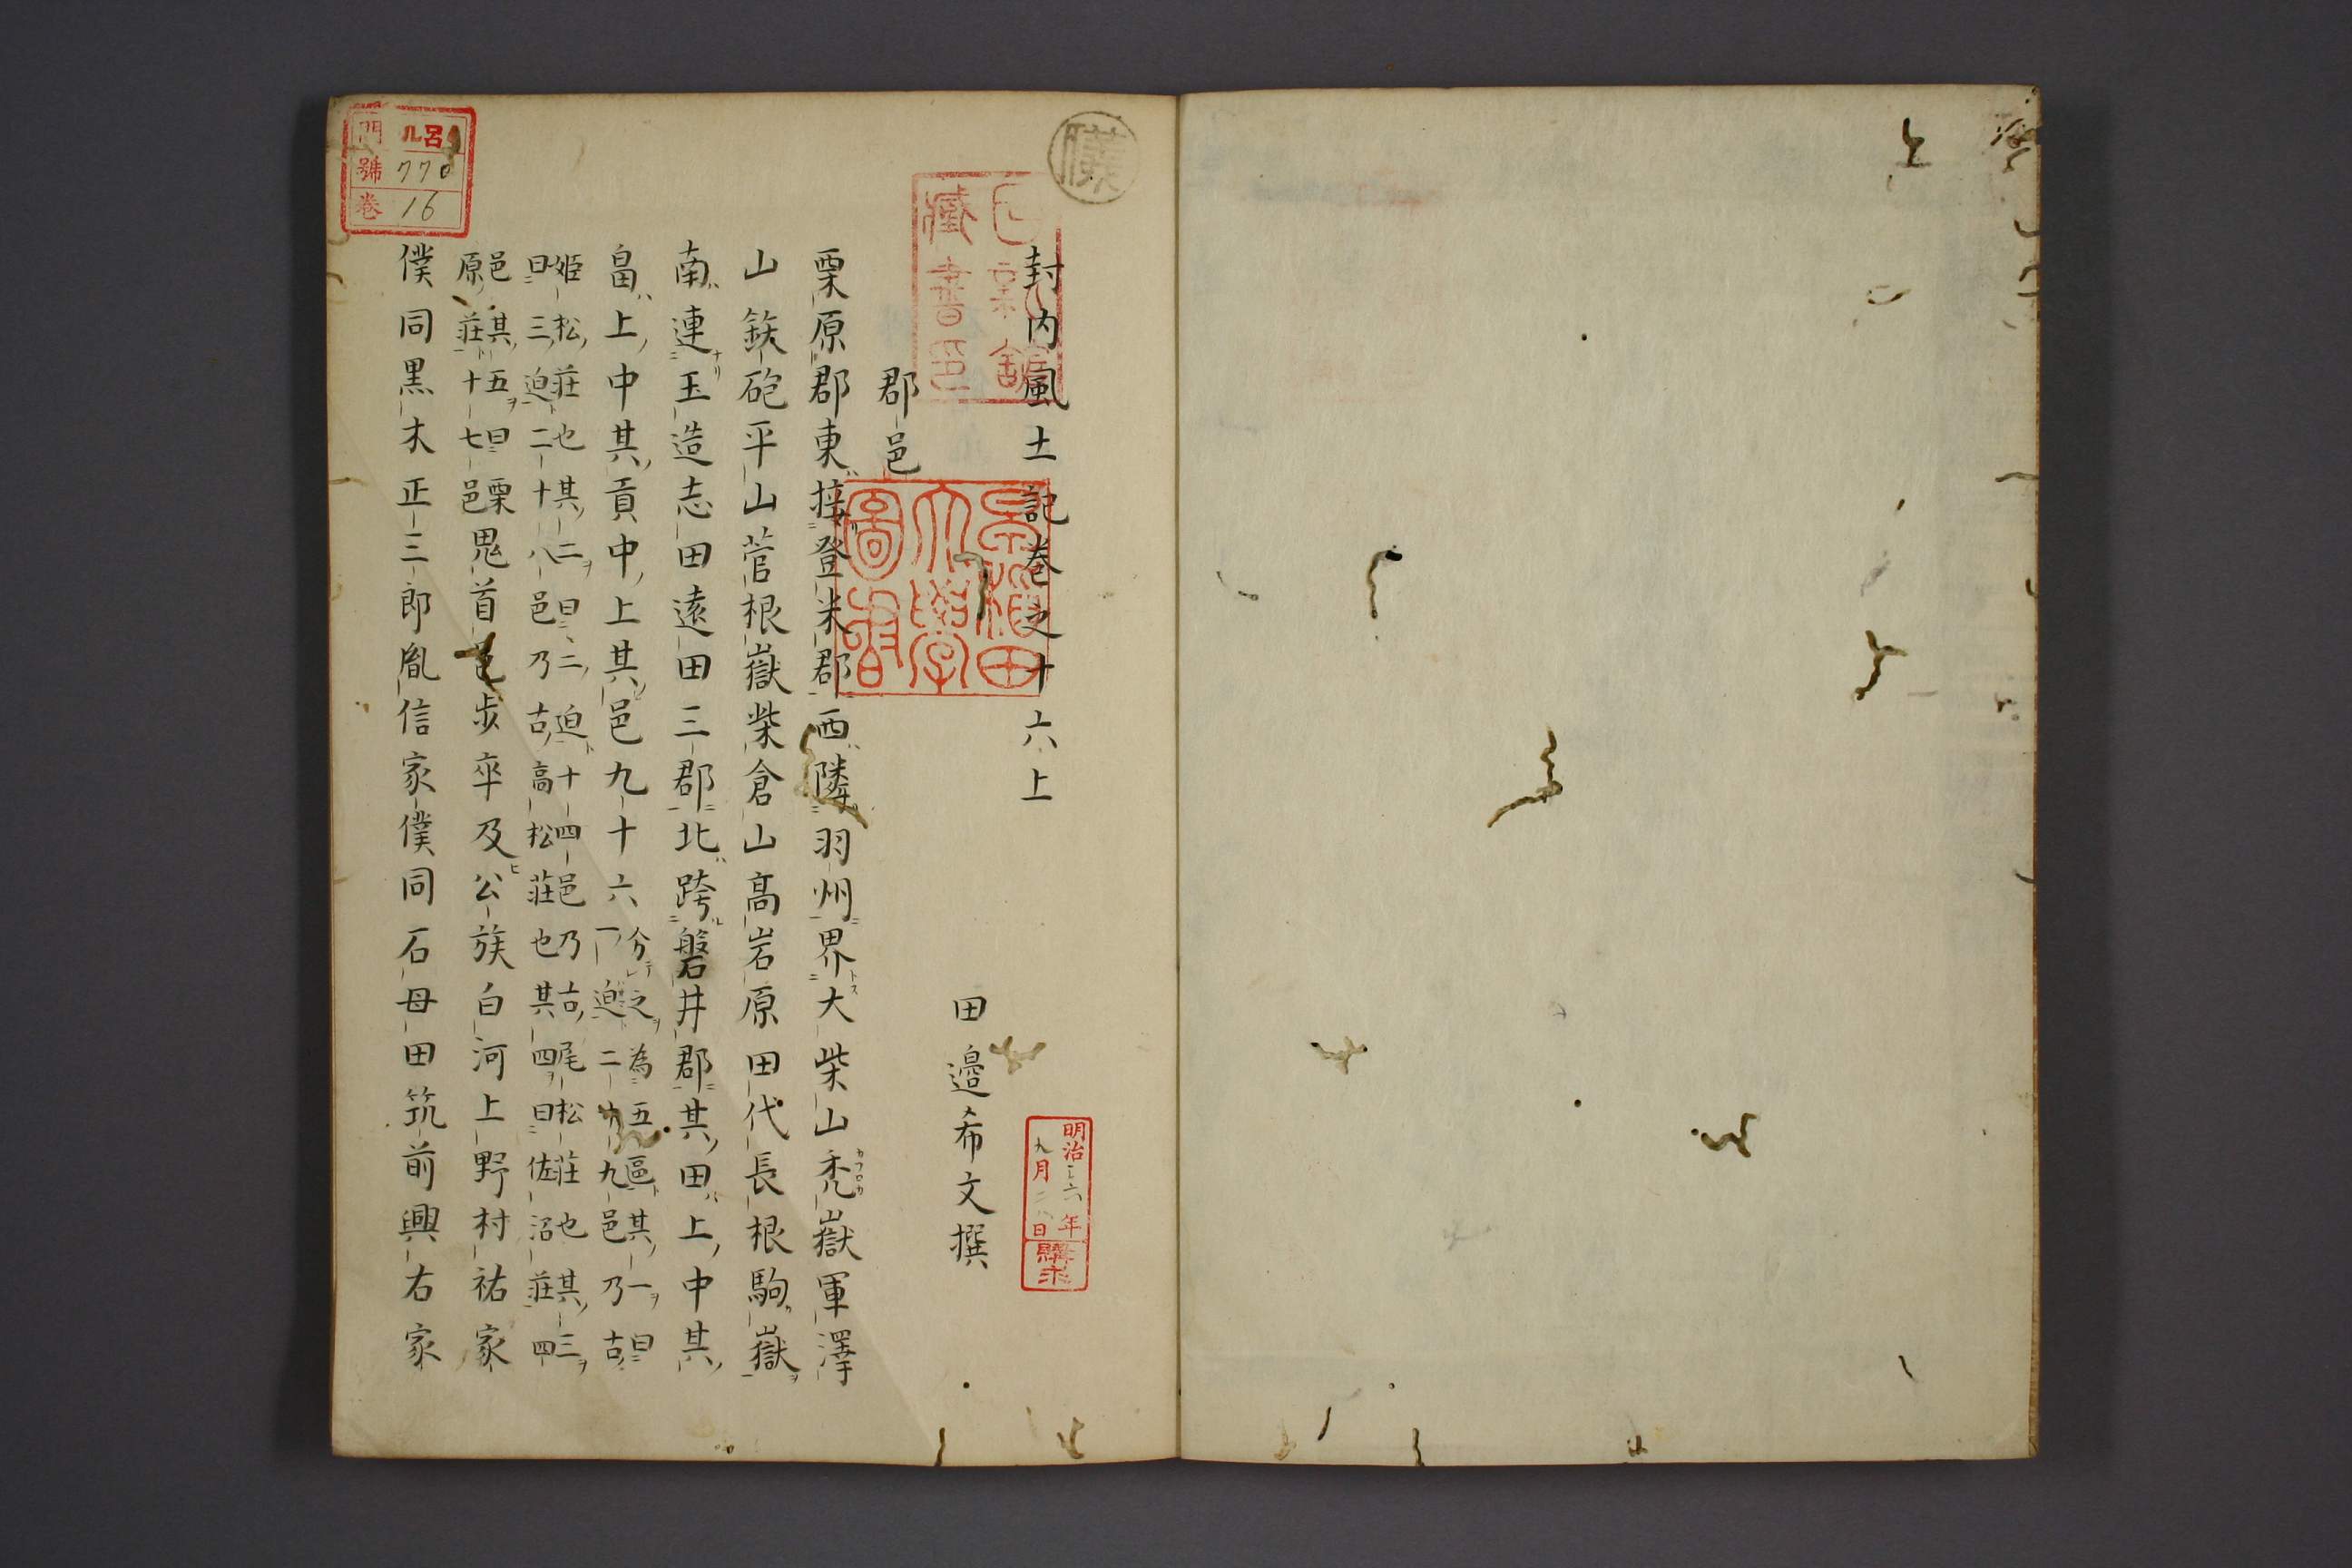 封内風土記巻之十六上
田邉希文撰
郡邑
栗原郡東接登米郡西隣羽州界大柴山禿嶽軍澤
山鉄砲平山菅根嶽柴倉山高岩原田代長根駒嶽
南連玉造志田遠田三郡北跨磐井郡其田上中其
畠上中其貢中上其邑九十六
分之為五區其一曰
一迫二十九邑乃古
姫松莊也其二曰二迫十四邑乃古尾松莊也其三
曰三迫二十八邑乃古高松莊也其四曰佐沼莊四
邑其五曰栗
原莊十七邑
鬼首邑歩卒及公族白河上野村祐家
僕同黒木正三郎胤信家僕同石母田筑前興右家
明治三六年
九月二八日
購求
早稲田大學圖書
門 ル呂
號 770
巻 16